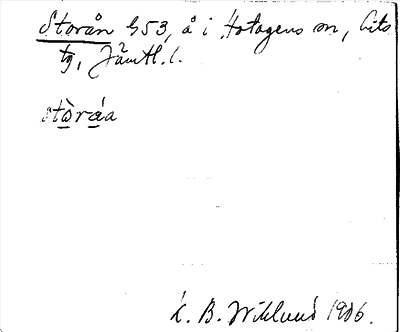 Storån G53, å i Hotagens sn, Lits
tg, Jämtl. l.
stò̱rá̱a
K. B. Wiklund 1906.